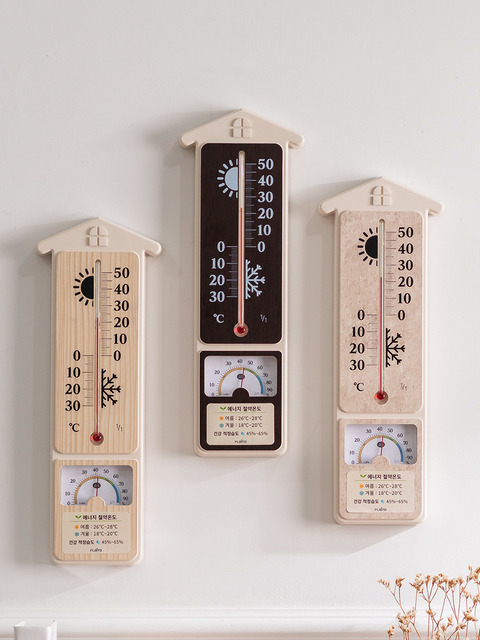 50
40
30
20
10
0
0
10
20
30
℃
1/1
0 10 20 30 40 50 60 70 80 90
에너지 절약온도
여름 : 26℃~28℃
겨울 : 18℃~20℃
건강 적정습도 45%~65%
50
40
30
20
10
0
0
10
20
30
℃
1/1
10 20 30 40 50 60 70 80 90
에너지 절약온도
여름 : 26℃~28℃
겨울 : 18℃~20℃
건강 적정습도 45%~65%
50
40
30
20
10
0
0
10
20
30
℃
1/1
10 20 30 40 50 60 70 80 90
에너지 절약온도
여름 : 26℃~28℃
겨울 : 18℃~20℃
건강 적정습도 45%~65%